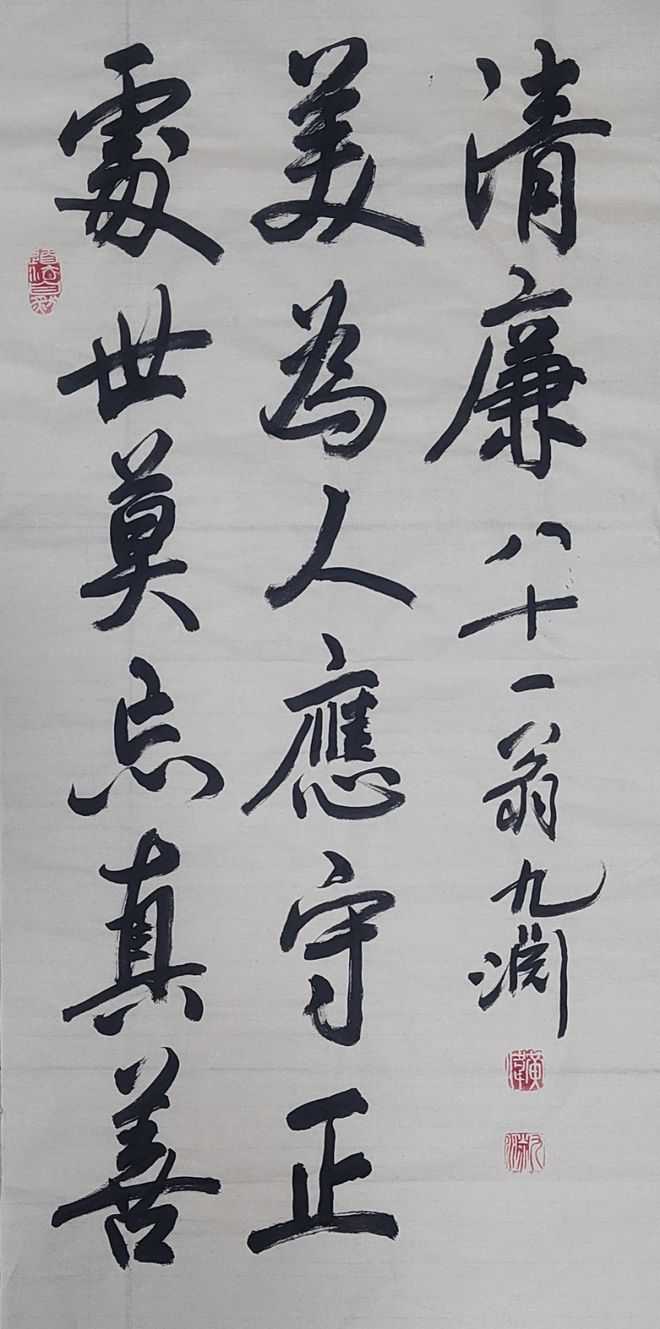 處世莫忘真善
美為人應守正
清廉八十一翁九淵
道法自然